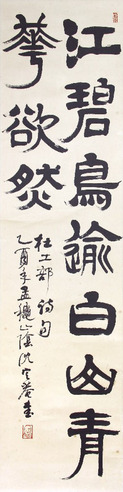 江碧鳥逾白山青
華欲然
杜工部詩句
乙酉年孟穐山陰沈定菴書